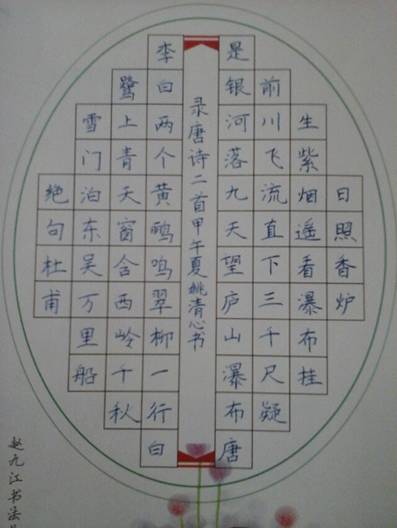 日照香炉
生紫烟遥看瀑布挂
前川飞流直下三千尺疑
是银河落九天望庐山瀑布唐
录唐诗二首甲午夏姚清心书
李白两个黄鹂鸣翠柳一行白
鹭上青天窗含西岭千秋
雪门泊东吴万里船
绝句杜甫
赵九江书法